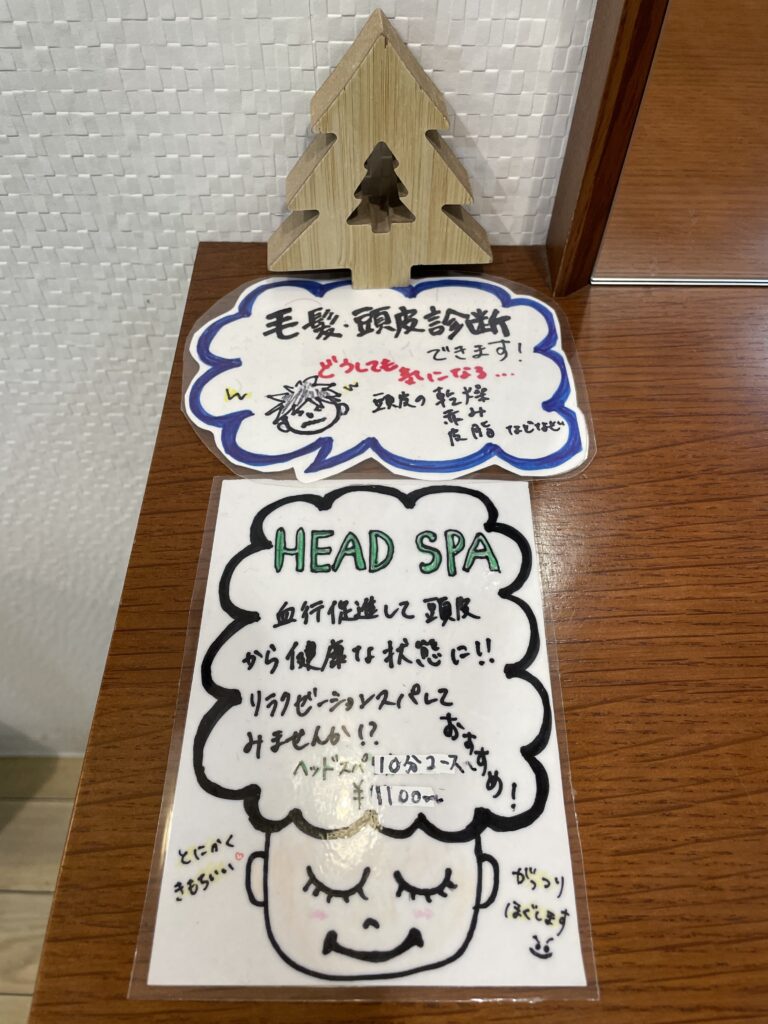 毛髪・頭皮診断
できます!
どうしても気になる...
頭皮の乾燥
赤み
皮脂 などなど
HEAD SPA
血行促進して頭皮
から健康な状態に!!
リラクゼーションスパして
みませんか!?
おすすめ!
ヘッドスパ 10分コース
¥1100
とにかく
きもちいい
がっつり
ほぐします